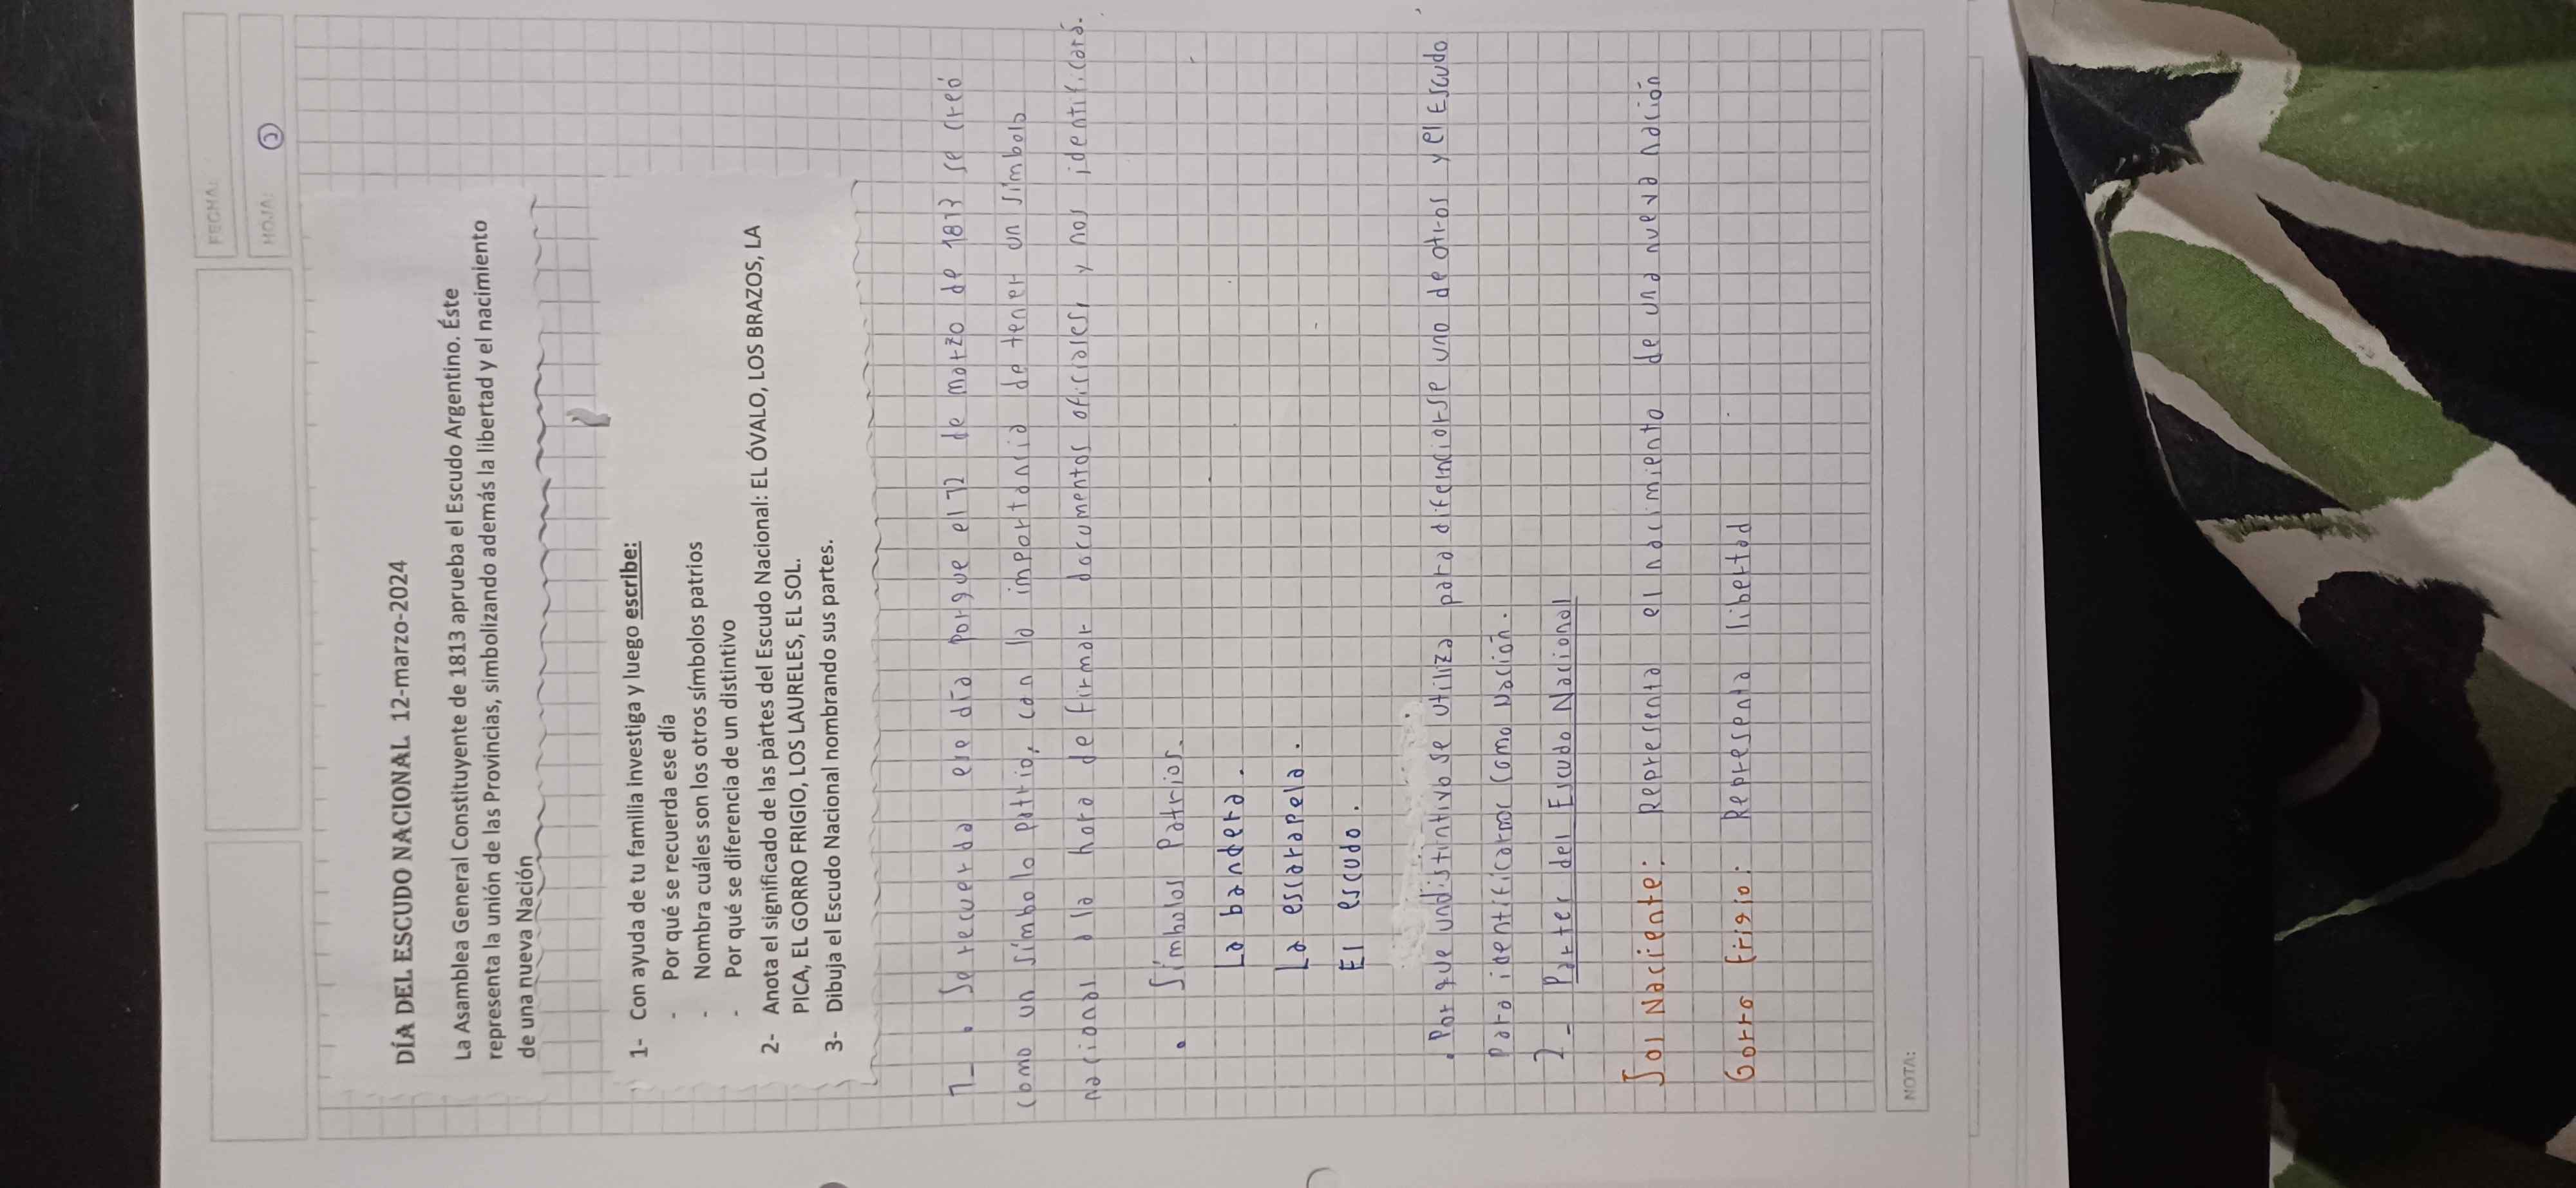 FECHA:
HOJA: 2
DÍA DEL ESCUDO NACIONAL 12-marzo-2024
La Asamblea General Constituyente de 1813 aprueba el Escudo Argentino. Éste
representa la unión de las Provincias, simbolizando además la libertad y el nacimiento
de una nueva Nación
1- Con ayuda de tu familia investiga y luego escribe:
- Por qué se recuerda ese día
- Nombra cuáles son los otros símbolos patrios
- Por qué se diferencia de un distintivo
2- Anota el significado de las partes del Escudo Nacional: EL ÓVALO, LOS BRAZOS, LA
PICA, EL GORRO FRIGIO, LOS LAURELES, EL SOL.
3- Dibuja el Escudo Nacional nombrando sus partes.
1_ . Se recuerda ese día porque el 12 de marzo de 1813 se creó
como un símbolo patrio, con la importancia de tener un símbolo
nacional a la hora de firmar documentos oficiales y nos identificará.
. Símbolos Patrios.
La bandera.
La escarapela.
El escudo.
. Por que un distintivo se utiliza para diferenciarse uno de otros y el Escudo
para identificarnos como Nación.
2_ Partes del Escudo Nacional
Sol Naciente: Representa el nacimiento de una nueva nación
Gorro frigio: Representa libertad
NOTA: